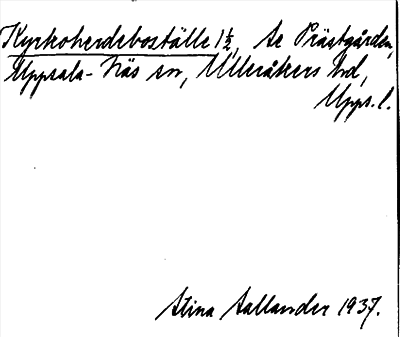 Kyrkoherdeboställe 1½, se Prästgården,
Uppsala-Näs sn, Ulleråkers hd,
Upps. l.
Stina Aallander 1937.